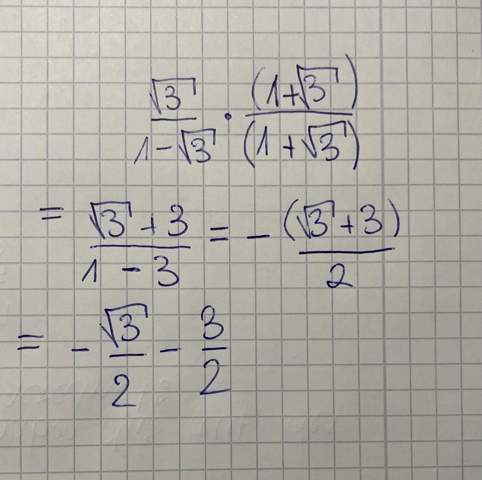 √3/(1-√3) · (1+√3)/(1+√3)
= (√3+3)/(1-3) = -(√3+3)/2
= -√3/2 - 3/2